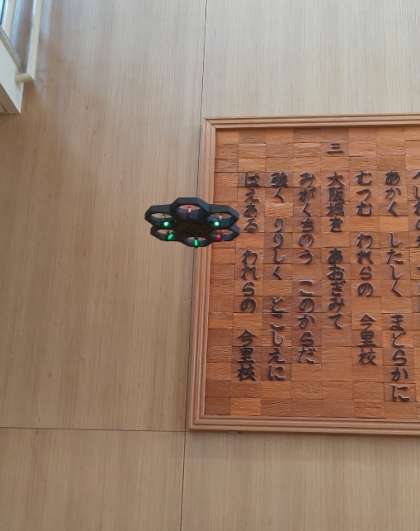 あかく したしく まどらかに
むつむ われらの 今里校
三
大阪城を あおぎみて
みがくちのう このからだ
強く りりしく とこしえに
はえある われらの 今里校